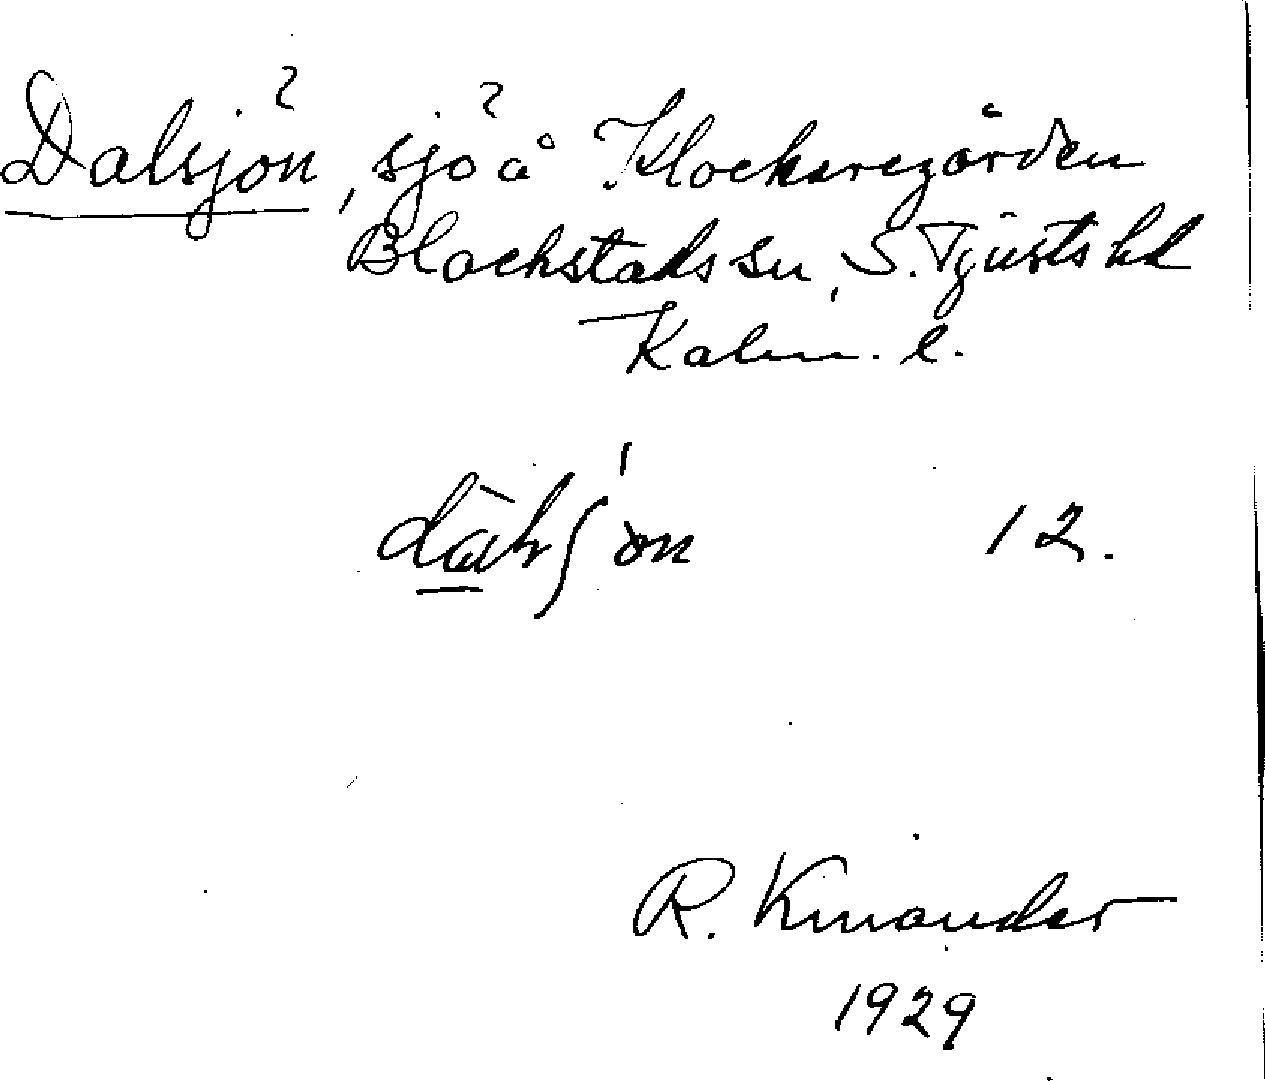 Dalsjön, sjö å Klockaregården
Blackstads sn, S. Tjusts hd
Kalm. l.
12.
R. Kinander
1929